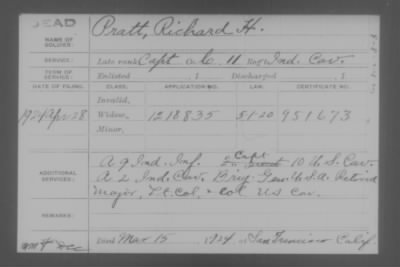 DEAD
NAME OF SOLDIER:
Pratt, Richard H.
SERVICE:
Late rank Capt Co. C. 11 Reg't Ind. Cav.
TERM OF SERVICE:
Enlisted , 1 Discharged , 1
DATE OF FILING. CLASS. APPLICATION NO. LAW. CERTIFICATE NO.
Invalid,
1924 Apr 28 Widow, 1218835 5-1-20 951673
Minor,
ADDITIONAL SERVICES:
A 9 Ind. Inf. Capt 10 U.S. Cav.
A 2 Ind. Cav. Brig. Gen U.S.A. Retired
Major, Lt. Col, + Col. U.S. Cav.
REMARKS:
Died Mar 15, 1924, at San Francisco Calif.